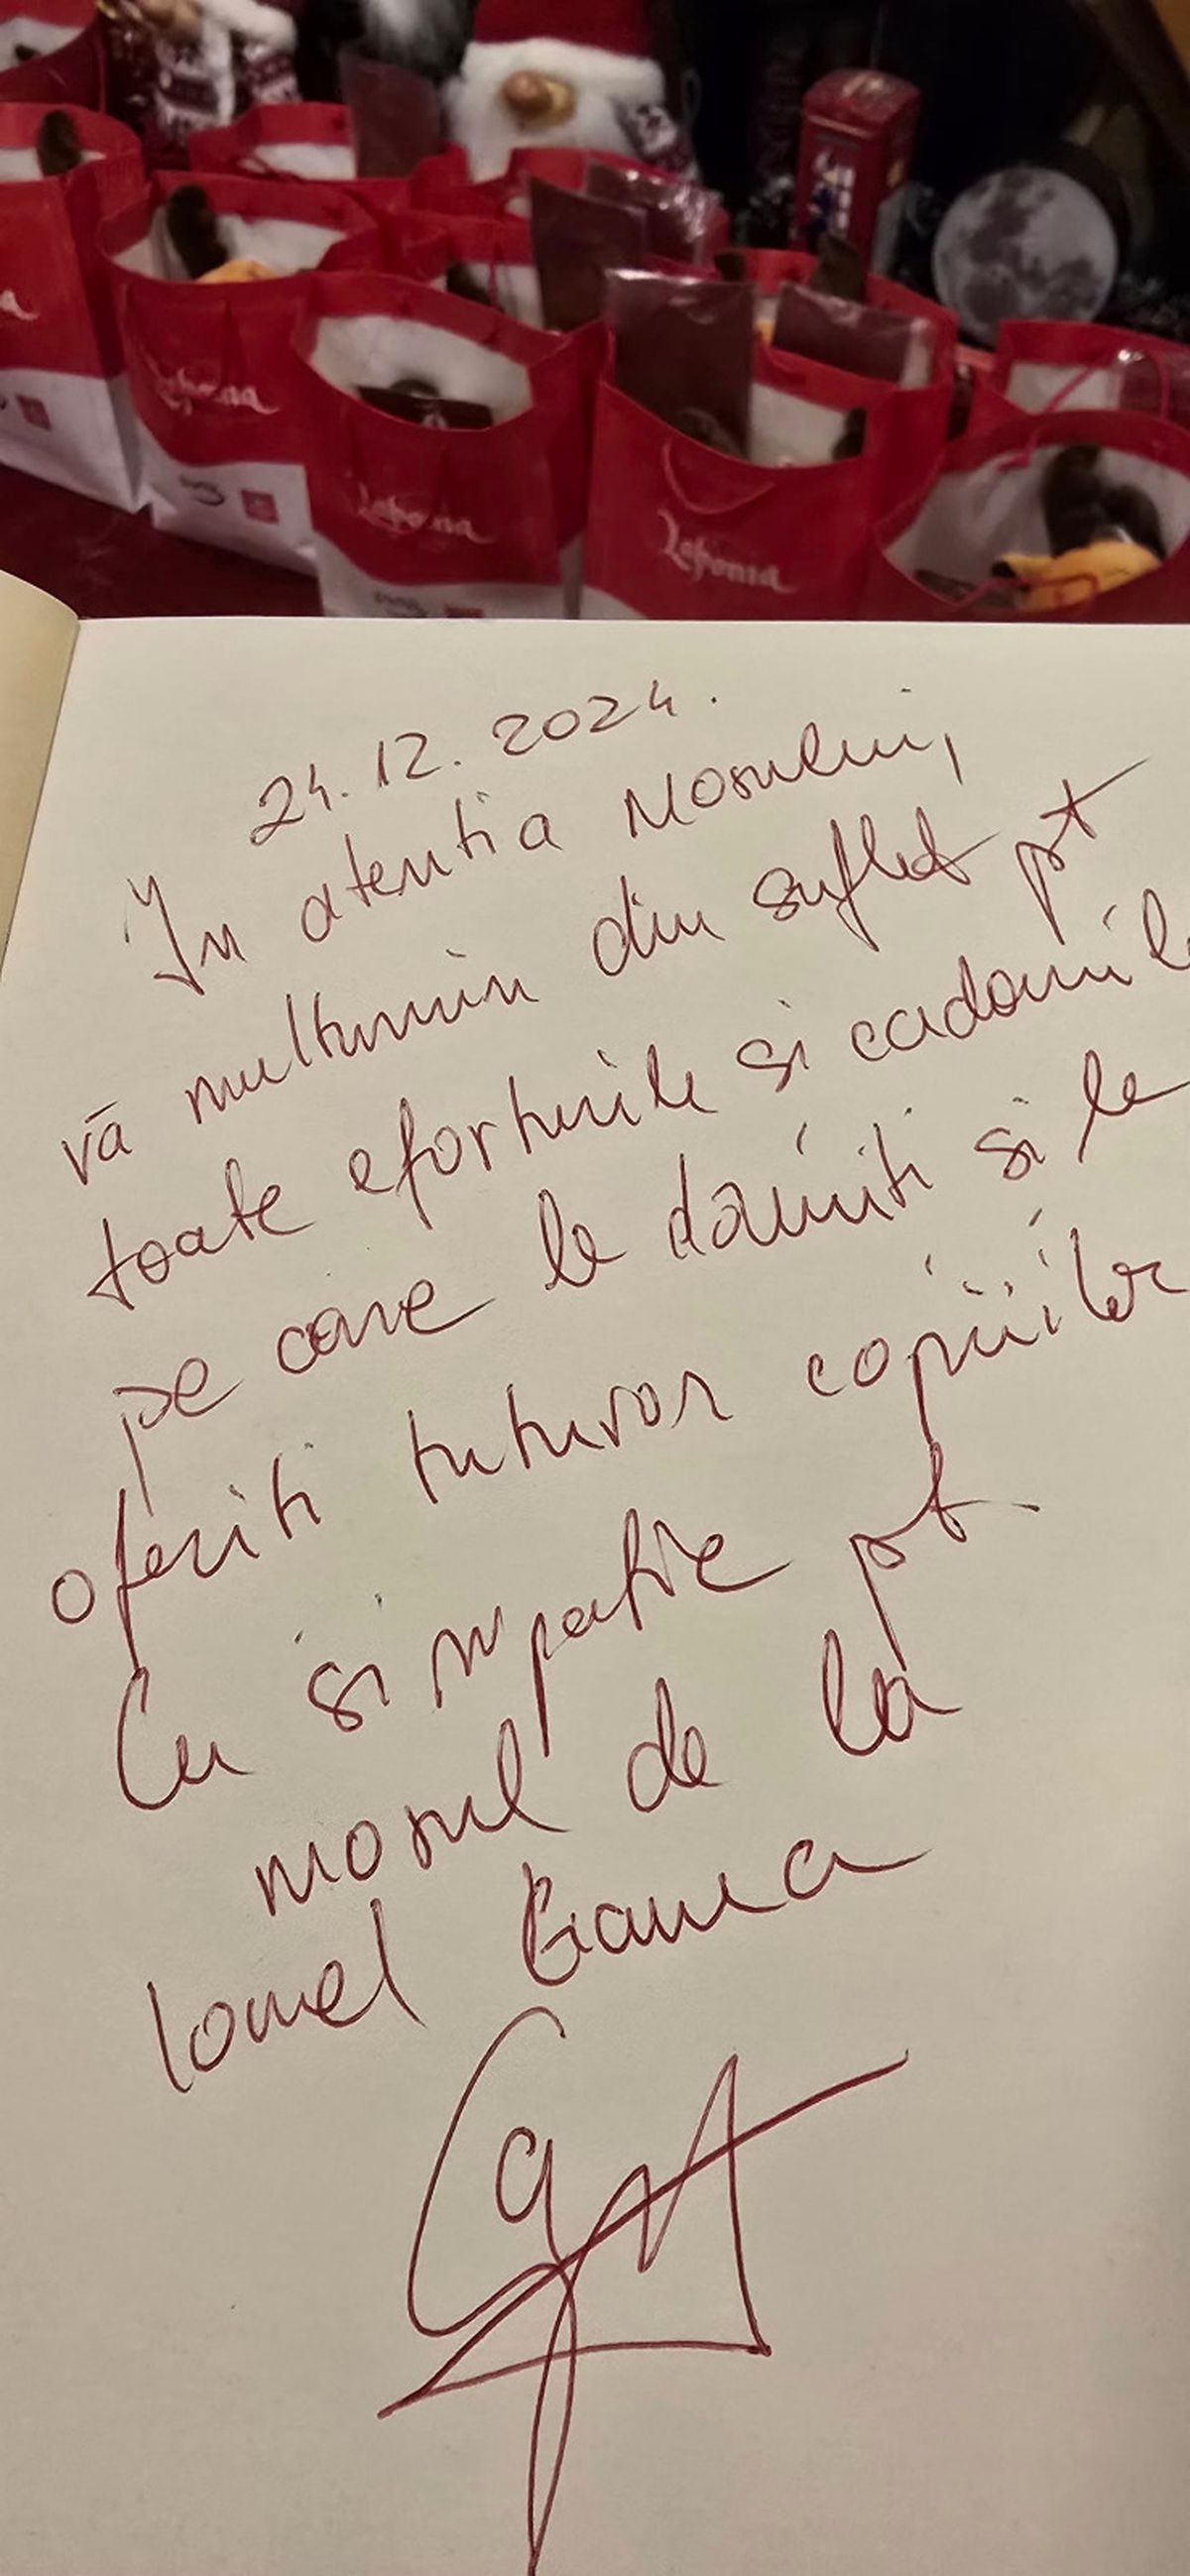 Laponia
Laponia
Laponia
24.12.2024.
In atentia Mosului,
vă multumim din suflet pt
toate eforturile si cadourile
pe care le dăruiti si le
oferiti tuturor copiiilor
Cu simpatie pt.
mosul de la
Ionel